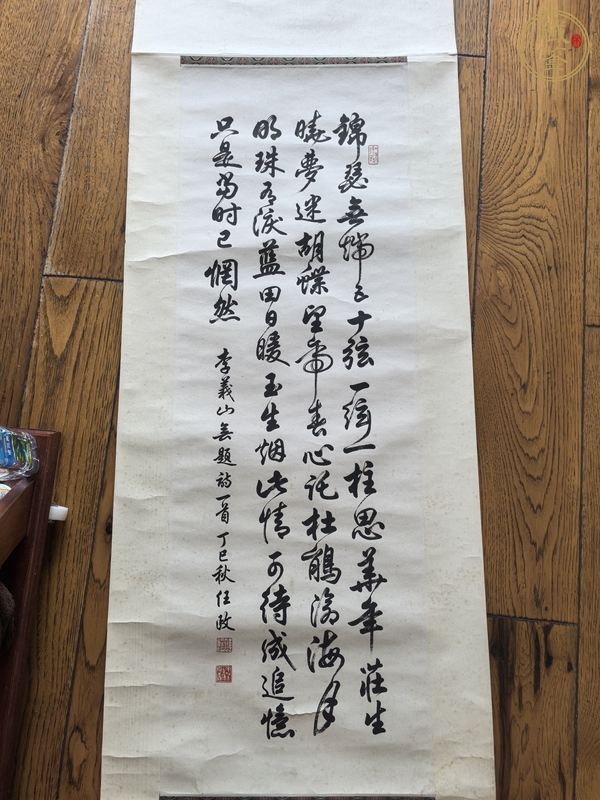 錦瑟無端五十弦一弦一柱思華年莊生
曉夢迷胡蝶望帝春心託杜鵑滄海月
明珠有淚藍田日暖玉生烟此情可待成追憶
只是當时已惘然
李義山無題詩一首 丁巳秋任政